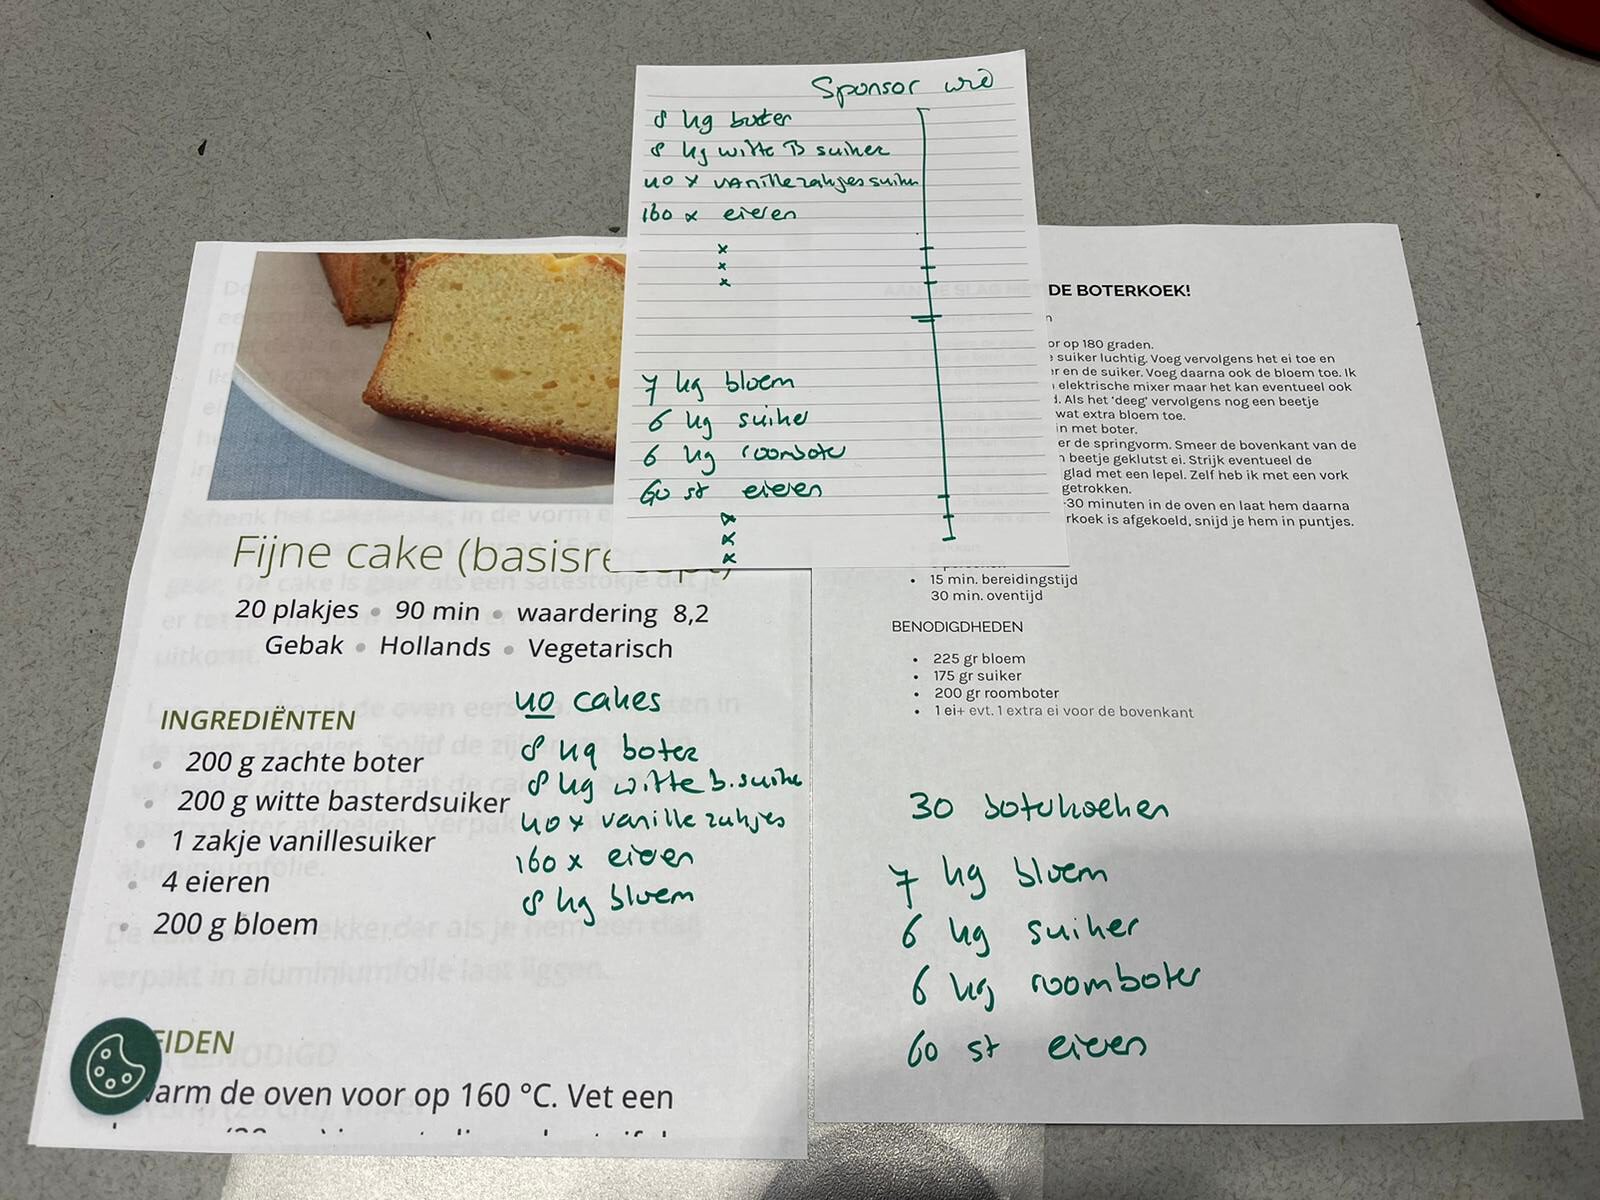 Sponsor wie
8 kg boter
8 kg witte B suiker
40 x vanillezakjes suiker
160 x eieren
x
x
x
7 kg bloem
6 kg suiker
6 kg roomboter
60 st eieren
x
x
x
Fijne cake (basisre
20 plakjes • 90 min • waardering 8,2
Gebak • Hollands • Vegetarisch
INGREDIËNTEN
• 200 g zachte boter
• 200 g witte basterdsuiker
• 1 zakje vanillesuiker
• 4 eieren
• 200 g bloem
40 cakes
8 kg boter
8 kg witte b.suike
40 x vanille zakjes
160 x eieren
8 kg bloem
EIDEN
arm de oven voor op 160 °C. Vet een
DE BOTERKOEK!
n
or op 180 graden.
e suiker luchtig. Voeg vervolgens het ei toe en
er en de suiker. Voeg daarna ook de bloem toe. Ik
elektrische mixer maar het kan eventueel ook
d. Als het 'deeg' vervolgens nog een beetje
wat extra bloem toe.
in met boter.
er de springvorm. Smeer de bovenkant van de
n beetje geklutst ei. Strijk eventueel de
glad met een lepel. Zelf heb ik met een vork
getrokken.
-30 minuten in de oven en laat hem daarna
rkoek is afgekoeld, snijd je hem in puntjes.
• 15 min. bereidingstijd
30 min. oventijd
BENODIGDHEDEN
• 225 gr bloem
• 175 gr suiker
• 200 gr roomboter
• 1 ei+ evt. 1 extra ei voor de bovenkant
30 boterkoeken
7 kg bloem
6 kg suiker
6 kg roomboter
60 st eieren